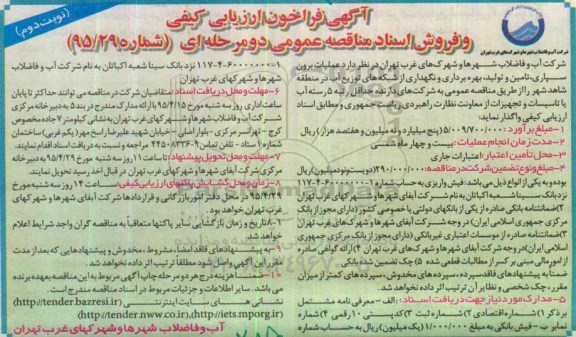 آگهی فراخون ارزیابی کیفی
(نوبت دوم)
و فروش اسناد مناقصه عمومی دو مرحله ای (شماره ۹۵/۲۹)
شرکت آب و فاضلاب شهرها و شهرکهای غرب تهران
شرکت آب و فاضلاب شهرها و شهرک های غرب تهران در نظر دارد عملیات برون
سپاری، تامین و تولید، بهره برداری و نگهداری از شبکه های توزیع آب در منطقه
شاهد شهر را از طریق مناقصه عمومی به شرکت های دارنده حداقل رتبه ۵ رسته آب
یا تاسیسات و تجهیزات از معاونت نظارت راهبردی ریاست جمهوری و مطابق اسناد
ارزیابی کیفی واگذار نماید:
۱-مبلغ برآورد: ۵/۰۰۹/۷۰۰/۰۰۰ (پنج میلیارد و نه میلیون و هفتصد هزار) ریال
۲-مدت زمان انجام عملیات: بیست و چهار ماه شمسی
۳-محل تأمین اعتبار: اعتبارات جاری
۴-مبلغ و نوع تضمین شرکت در مناقصه: ۲۹۰/۰۰۰/۰۰۰ (دویست و نود میلیون) ریال
بوده و به یکی از انواع ذیل می باشد: فیش واریزی به حساب شماره
نزد بانک سینا شعبه اکباتان به نام شرکت آبفای شهرها و شهرکهای غرب تهران
۲) ضمانتنامه بانکی صادره از یکی از بانکهای دولتی یا خصوصی کشور (دارای مجوز از بانک
مرکزی جمهوری اسلامی ایران) در وجه شرکت آبفای شهرها و شهرک های غرب تهران
۳) ضمانتنامه صادره از موسسات اعتباری غیربانکی (دارای مجوز از بانک مرکزی جمهوری
اسلامی ایران) در وجه شرکت آبفای شهرها و شهرک های غرب تهران ۴) ارائه گواهی نامه
از امور مالی مبنی بر کسر از مطالبات قطعی شده ۵) چک تضمین شده بانکی
ضمنا به پیشنهادهای فاقد سپرده، سپرده های مخدوش، سپرده های کمتر از میزان
مقرر، چک شخصی و نظایر آن ترتیب اثر داده نخواهد شد.
۵-مدارک مورد نیاز جهت دریافت اسناد: الف- معرفی نامه مشتمل
بر ذکر ۱) شماره اقتصادی ۲) شماره ثبت ۳) کدپستی ۱۰ رقمی ۴) شماره
نمابر ب- فیش بانکی به مبلغ ۱/۰۰۰/۰۰۰ (یک میلیون) ریال به حساب شماره
۱-۶۰۰۰۰۰۰۰-۴-۱۱۷ نزد بانک سینا شعبه اکباتان به نام شرکت آب و فاضلاب
شهرها و شهرکهای غرب تهران
۶-مهلت و محل دریافت اسناد: متقاضیان شرکت در مناقصه می توانند حداکثر تا پایان
ساعت اداری روز سه شنبه مورخ ۹۵/۴/۱۵ با ارائه مدارک مندرج در بند ۵ به دبیرخانه مرکزی
شرکت آب و فاضلاب شهرها و شهرکهای غرب تهران به نشانی کیلومتر ۷ جاده مخصوص
کرج - تهرانسر مرکزی - بلوار اصلی - خیابان شهید علیرضا راسخ مهر (یکم غربی) ساختمان
شماره ۱ اسناد - تلفن تماس ۴-۴۴۵۰۸۳۳۶ مراجعه و نسبت به دریافت اسناد اقدام نمایند.
۷-مهلت و محل تحویل پیشنهاد: تا ساعت ۱۱ روز سه شنبه مورخ ۹۵/۴/۲۹ به دبیرخانه
مرکزی شرکت آبفای شهرها و شهرکهای غرب تهران در قبال اخذ رسید تحویل نمایند.
۸-زمان و محل گشایش پاکتهای ارزیابی کیفی: ساعت ۱۴ روز سه شنبه مورخ
۹۵/۴/۲۹ در محل دفتر امور بازرگانی و قراردادها شرکت آبفای شهرها و شهرکهای
غرب تهران خواهد بود.
۸-۱ تاریخ و زمان بازگشایی سایر پاکتها متعاقباً به مناقصه گران واجد شرایط اعلام
خواهد شد.
۹-به پیشنهادهای فاقد امضا، مشروط، مخدوش و پیشنهادهایی که بعد از مدت
مقرر این آگهی واصل شود مطلقاً ترتیب اثر داده نخواهد شد.
۱۰-هزینه درج هر دو مرحله چاپ آگهی مربوط به این مناقصه بعهده برنده
می باشد. سایر اطلاعات و جزئیات مربوط در اسناد مناقصه مندرج است.
نشانی های سایت اینترنتی (http://tender.bazresi.ir)
(http://tender.nww.co.ir)، (http://iets.mporg.ir)
آب و فاضلاب شهرها و شهرکهای غرب تهران